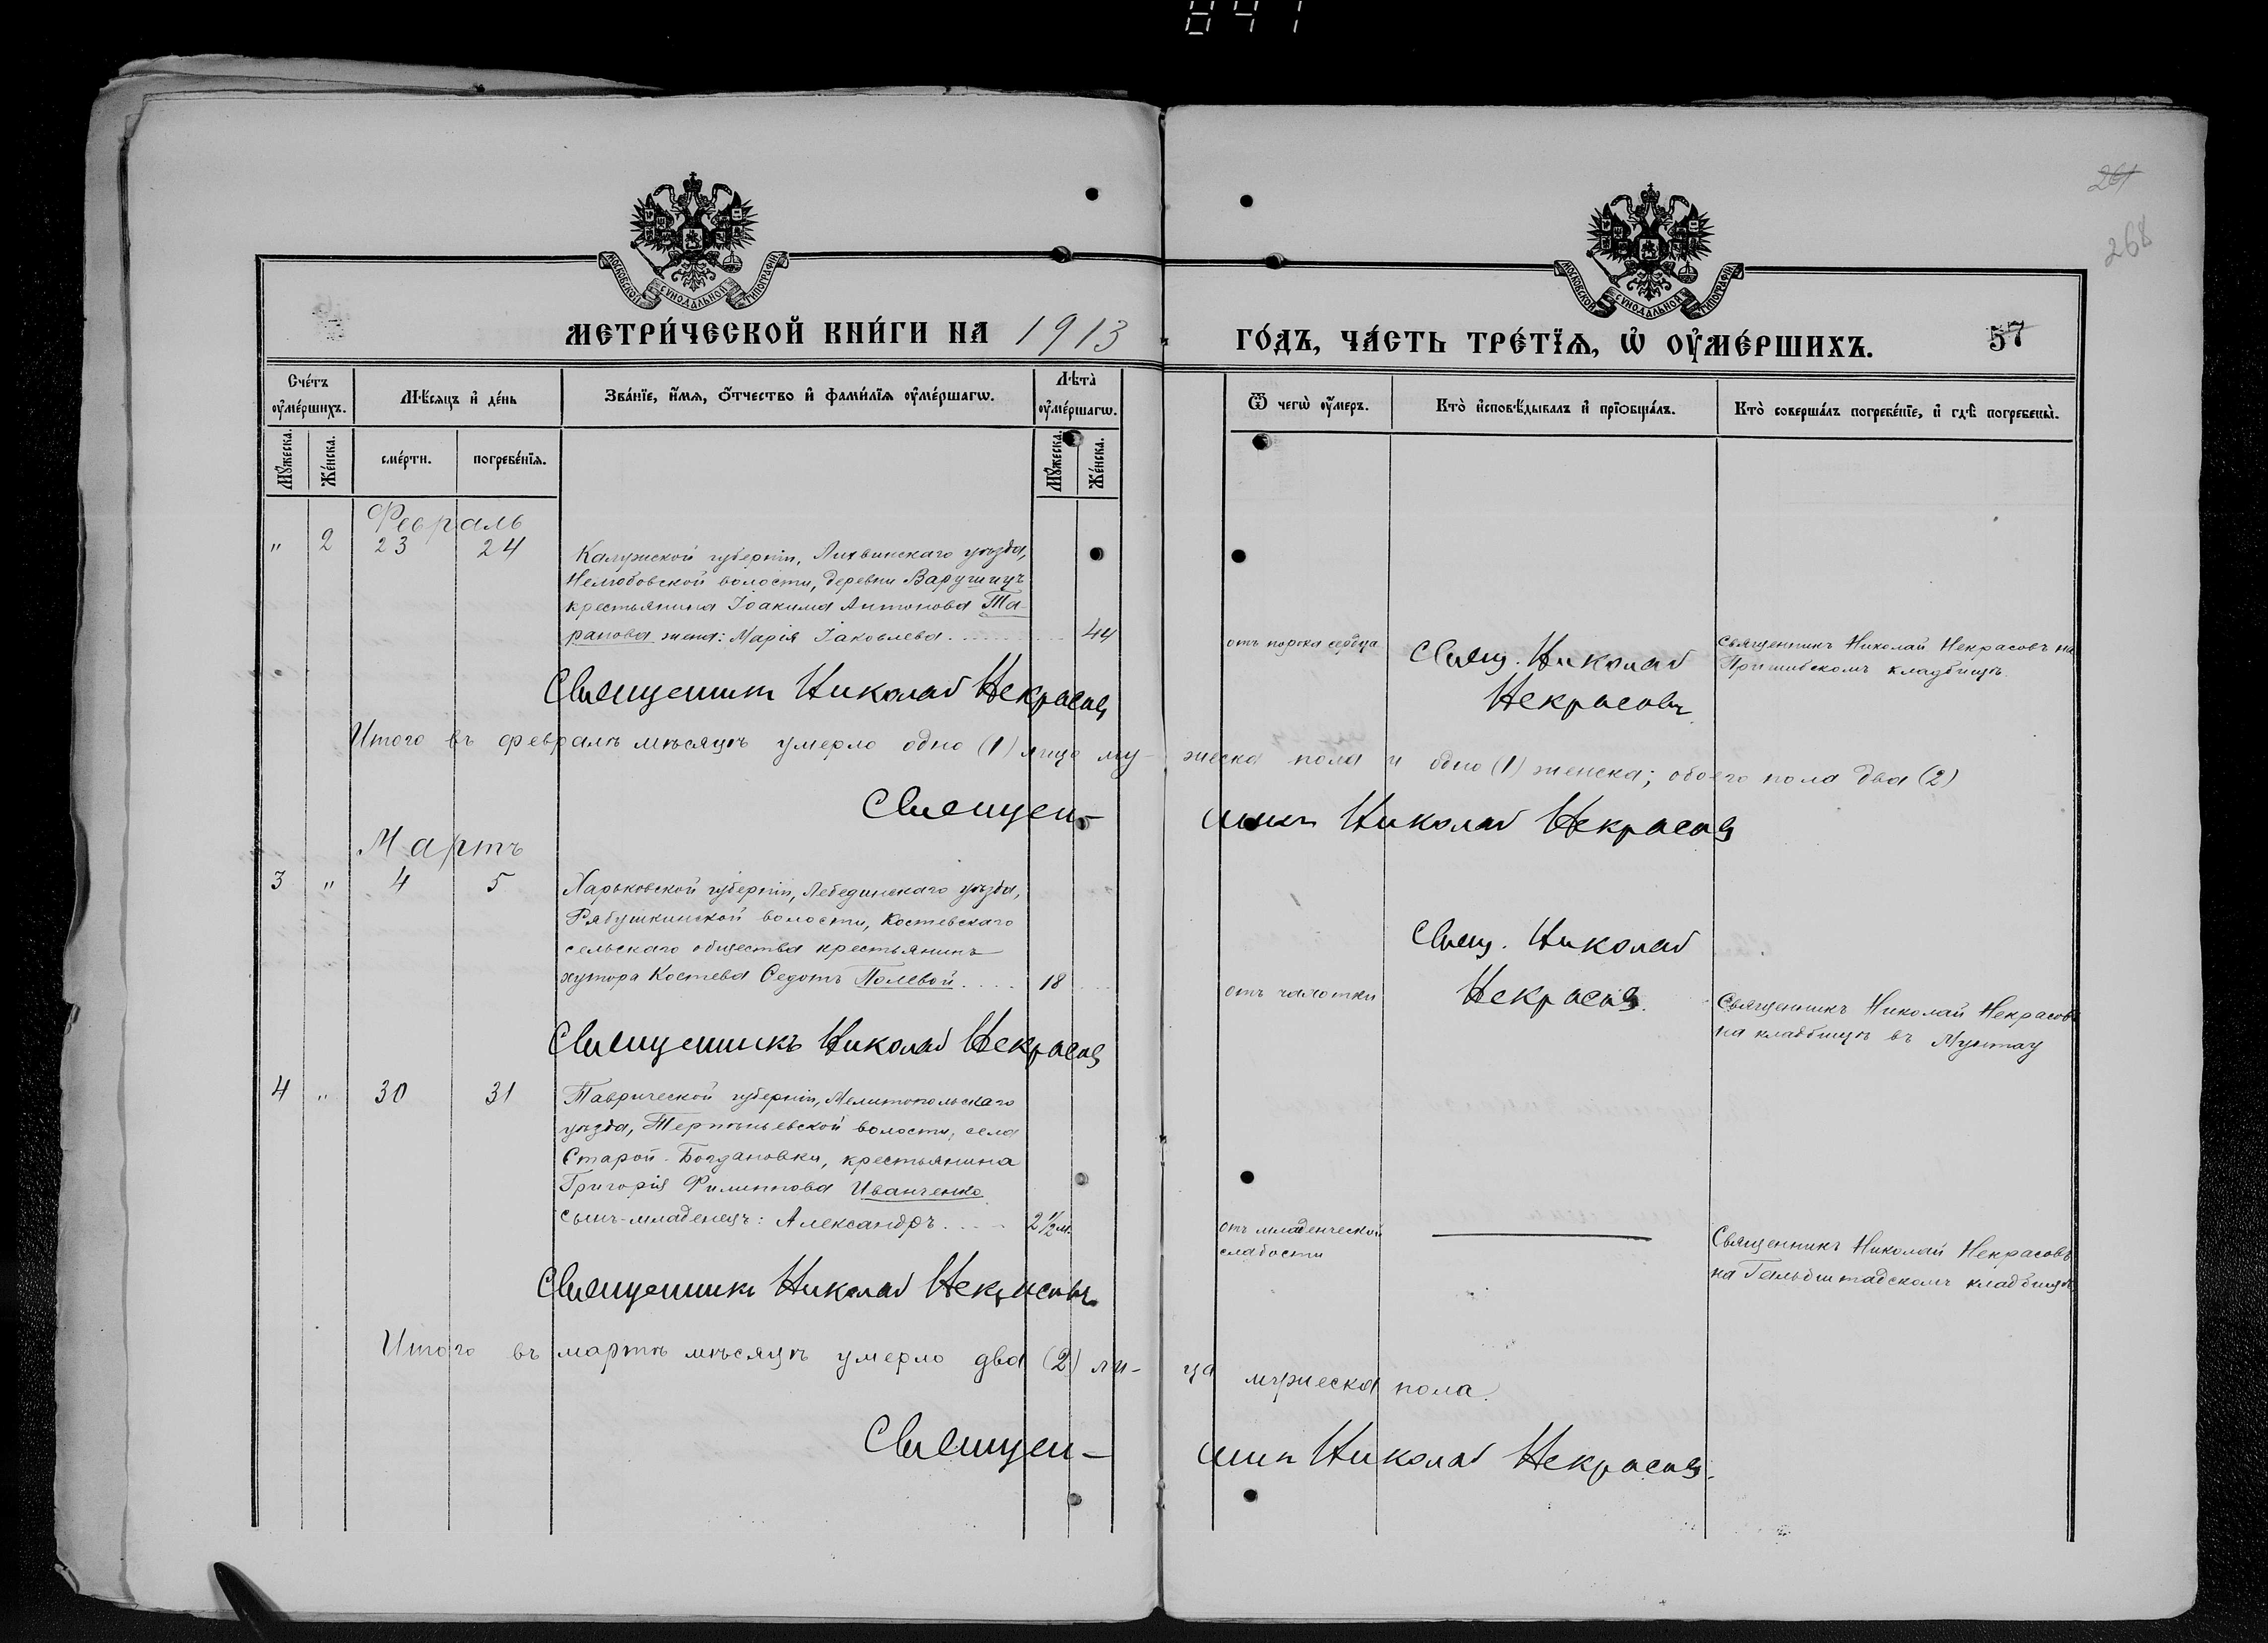 841
261
268
МОСКОВСКОЙ СѴНОДАЛЬНОЙ ТИПОГРАФІИ
МОСКОВСКОЙ СѴНОДАЛЬНОЙ ТИПОГРАФІИ
МЕТРИ́ЧЕСКОЙ КНИ́ГИ НА 1913 ГО́ДЪ, ЧА́СТЬ ТРЕ́ТЇѦ, Ѡ҆ ОУ҆МЕ́РШИХЪ.
57
Сче́тъ оу҆ме́ршихъ.
Мꙋ́жеска.
Же́нска.
Мѣ́сяцъ и҆ де́нь
сме́рти.
погребе́нїѧ.
Зва́нїе, и҆́мѧ, ѻ҆́тчество и҆ фами́лїѧ оу҆ме́ршагѡ.
Лѣ́та оу҆ме́ршагѡ.
Мꙋ́жеска.
Же́нска.
Ѿ чегѡ̀ оу҆́меръ.
Кто̀ и҆сповѣ́дывалъ и҆ прїѡбща́лъ.
Кто̀ соверша́лъ погребе́нїе, и҆ гдѣ̀ погребены̀.
Февраль
" 2 23 24
Калужской губерніи, Лихвинскаго уѣзда,
Нелюбовской волости, деревни Варушицъ
крестьянина Іоакима Антонова Та-
ранова жена: Марія Іаковлева. 44
отъ порока сердца
Свящ. Николай
Некрасовъ
Священникъ Николай Некрасовъ на
Пришибскомъ кладбищѣ.
Священникъ Николай Некрасовъ
Итого въ февралѣ мѣсяцѣ умерло одно (1) лицо му- жеска пола и одно (1) женска; обоего пола два (2)
Священ- никъ Николай Некрасовъ
Мартъ
3 " 4 5
Харьковской губерніи, Лебединскаго уѣзда,
Рябушкинской волости, Костевскаго
сельскаго общества крестьянинъ
хутора Костева Ѳедотъ Полевой.... 18
отъ чахотки
Свящ. Николай
Некрасовъ.
Священникъ Николай Некрасовъ
на кладбищѣ въ Мунтау
Священникъ Николай Некрасовъ
4 " 30 31
Таврической губерніи, Мелитопольскаго
уѣзда, Терпѣньевской волости, села
Старой-Богдановки, крестьянина
Григорія Филиппова Иванченко
сынъ-младенецъ: Александръ.... 2 1/2 м.
отъ младенческой
слабости
Священникъ Николай Некрасовъ
на Гальбштадскомъ кладбищѣ
Священникъ Николай Некрасовъ
Итого въ мартѣ мѣсяцѣ умерло два (2) ли- ца мужеска пола.
Священ- никъ Николай Некрасовъ.